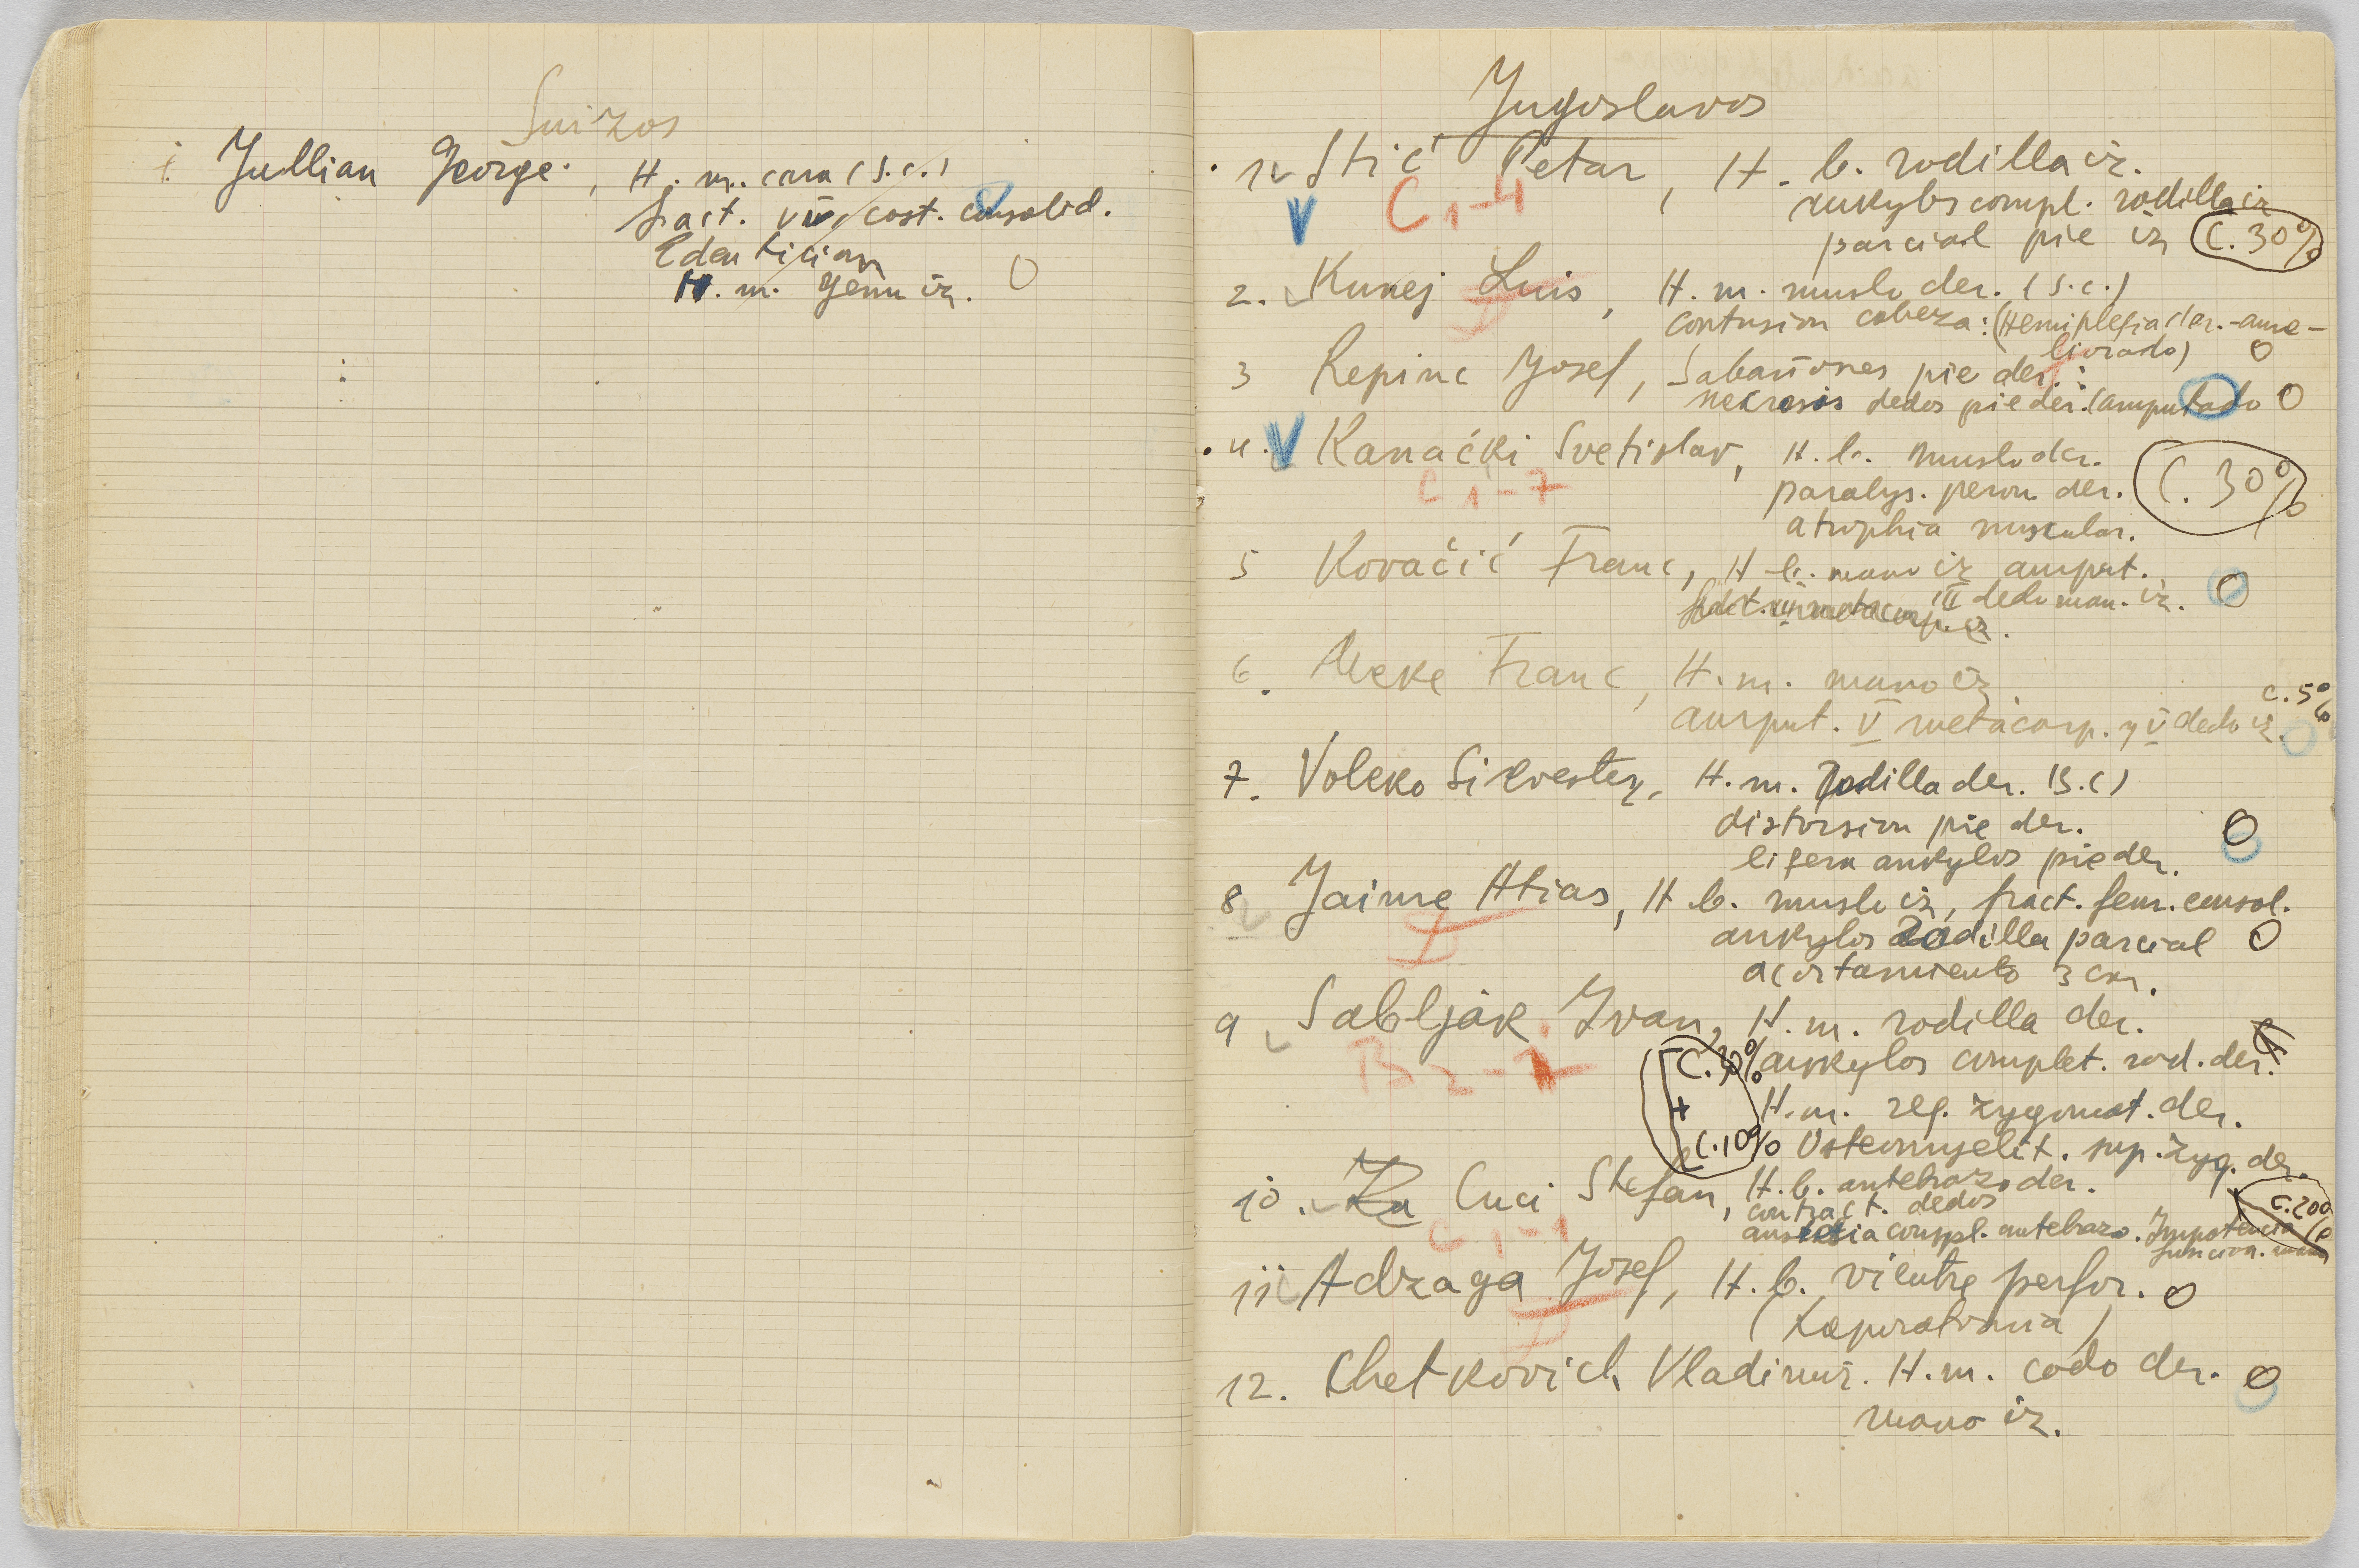 Suizos
1. Jullian George, H. m. cara (S.c.)
fract. VII cost. consolid.
H. m. genu iz. 0
Jugoslavos
1. Stić Petar, H. b. rodilla iz.
C1-4
ankylos compl. rodilla iz
parcial pie iz C. 30%
2. Kunej Luis, H. m. muslo der. (S.c.)
D
contusion cabeza: (Hemiplegia der. - ame-
liorado) 0
3 Repinc Josef, Sabañones pie der.:
nekrosis dedos pie der. (amputado 0
4. Kanački Svetislav, H. b. muslo der.
C1-7
paralys. peron. der. C. 30%
atrophia muscular.
5 Kovačić Franc, H. b. mano iz amput.
III dedo man. iz. 0
6. Meke Franc, H. m. mano iz.
amput. V metacarp. y V dedo iz. C. 5%
7. Voleko Silvester, H. m. Rodilla der. (S.c)
distorsion pie der. 0
ligera ankylos pie der.
8 Jaime Atias, H. b. muslo iz, fract. fem. consol.
D
ankylos Rodilla parcial 0
acortamiento 3 cm.
9 Sabljak Ivan, H. m. rodilla der.
B2-7
C. 30% ankylos complet. rod. der.
+ H. m. reg. zygomat. der.
C. 10% Osteomyelit. sup. zyg. der.
10. Cuci Stefan, H. b. antebrazo der.
C1-1
contract. dedos C. 20%
compl. antebrazo. Impotencia
funcion. mano
11 Adzaga Josef, H. b. vientre perfor. 0
D
(Laporotomia)
12. Chetkovich Vladimir. H. m. codo der. 0
mano iz.